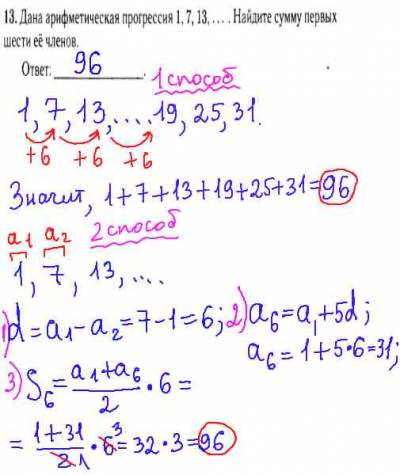 13. Дана арифметическая прогрессия 1, 7, 13, ... . Найдите сумму первых
шести её членов.
Ответ: 96.
1 способ
1, 7, 13, .... 19, 25, 31.
+6 +6 +6
Значит, 1+7+13+19+25+31=96
a1 a2 2 способ
1, 7, 13, ....
1) d=a1-a2=7-1=6; 2) a6=a1+5d;
a6=1+5·6=31;
3) S6=a1+a6/2·6=
=1+31/2 1·6 3=32·3=96